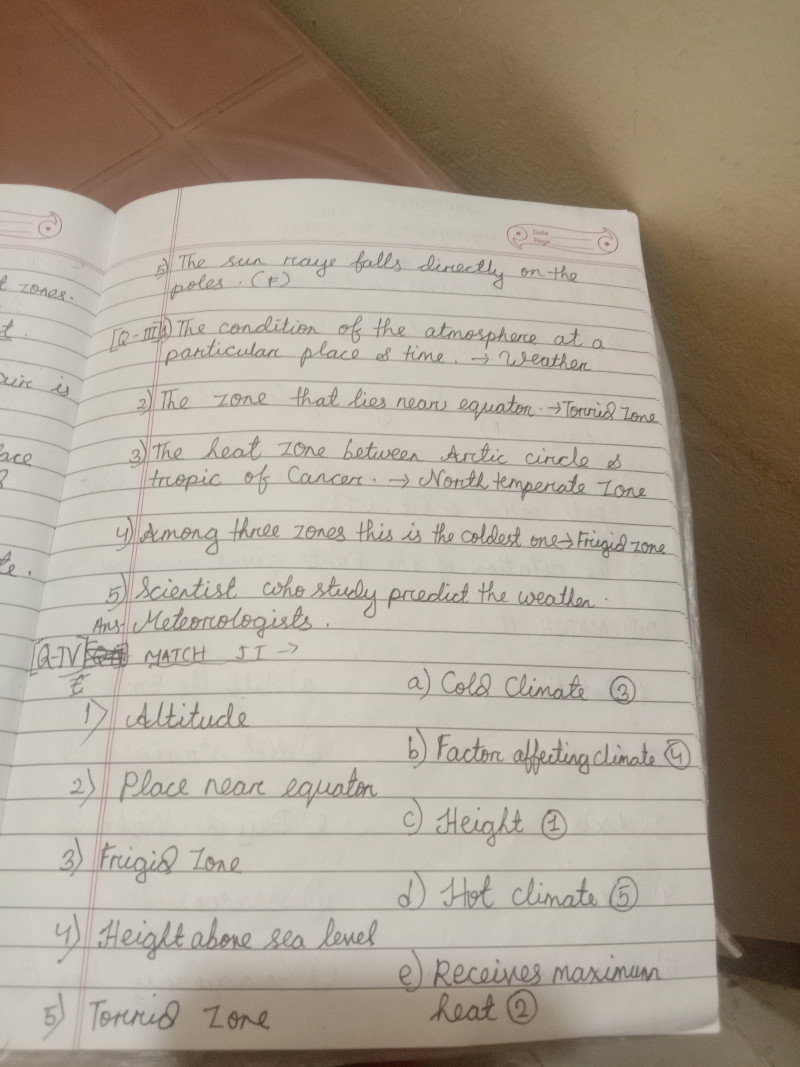 Date
Page
t zones.
t.
ace
te.
5) The sun rays falls directly on the
poles. (F)
[Q-III] 1) The condition of the atmosphere at a
particular place & time. → Weather
2) The zone that lies near equator. → Torrid Zone
3) The heat zone between Arctic circle &
tropic of Cancer. → North temperate Zone
4) Among three zones this is the coldest one → Frigid zone
5) Scientist who study predict the weather.
Ans- Meteorologists.
[Q-IV] MATCH IT →
a) Cold Climate ③
1) Altitude
b) Factor affecting climate ④
2) Place near equator
c) Height ①
3) Frigid Zone
d) Hot climate ⑤
4) Height above sea level
e) Receives maximum
heat ②
5) Torrid Zone